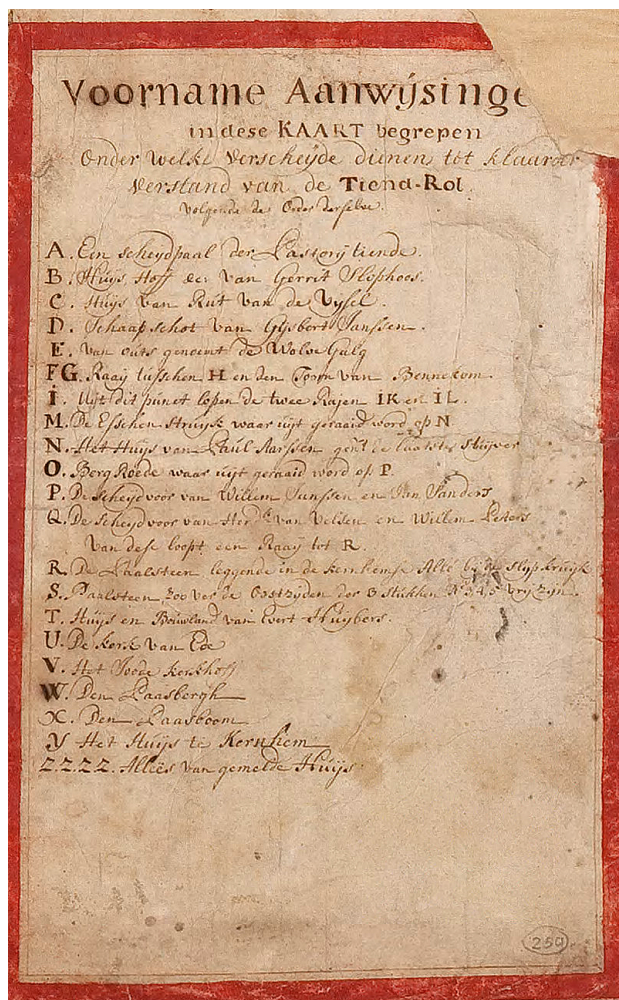 Voorname Aanwijsinge
in dese KAART begrepen
Onder welke Verscheyde dienen, tot klaarder
Verstand van de Tiend-Rol.
Volgende de Order derselve.
A. Een scheydpaal der Pastorij tiende.
B. Huys, Hoff &c: van Gerrit Sliphoos.
C. Huys van Rut van de Vysel.
D. Schaapschot van Gysbert Janssen.
E. van outs genoemt de Wolve Galg
FG. Raaij tusschen H en den Toorn van Bennekom.
I. Uijt dit punct lopen de twee Rajen IK en IL.
M. De Esschen Struyk waar uijt geraaid word op N
N. Het Huys van Paul Aarssen gent. de laatste Stuijver
O. Berg Roede waar uijt geraid word op P.
P. De Scheydvoor van Willem Janssen en Jan Sanders
Q. De Scheydvoor van Hendk. van Velsen en Willem Peters
van dese loopt een Raaij tot R.
R. De Paalsteen leggende in de Kernhemse Allé bij de Slypkruijk
S. Paalsteen, zoo ver de Oostzyden der 3 stukken N 3, 4, 5 vrij zijn.
T. Huijs en Bouwland van Evert Huijbers.
U. De Kerk van Ede
V. Het Joode Kerkhoff
W. Den Paasbergh
X. Den Paasboom
Y Het Huijs te Kernhem
Z.Z.Z.Z. Alleës van gemelde Huijs
259